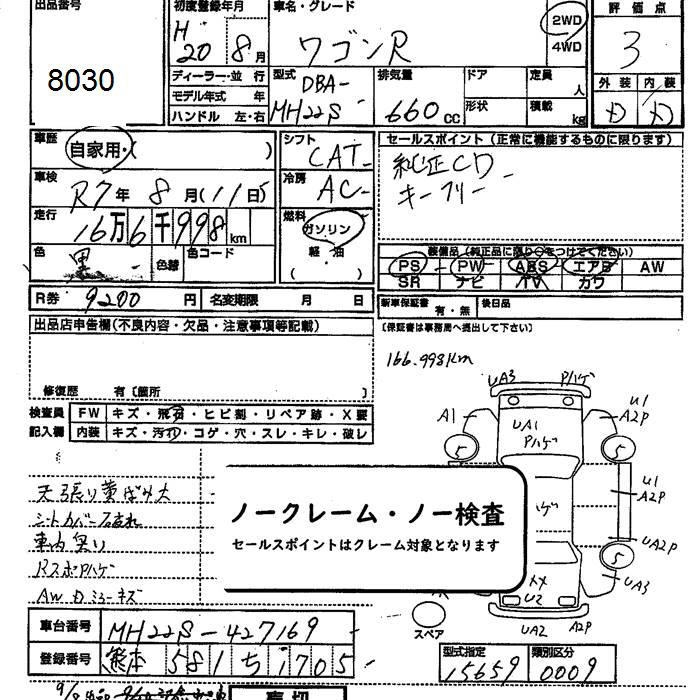 出品番号
8030
初度登録年月
H20 8月
車名・グレード
ワゴンR
2WD
4WD
評価点
3
ディーラー・並行
モデル年式 年
ハンドル 左・右
型式
DBA-
MH22S
排気量
660cc
ドア
形状
定員
人
積載
kg
外装 内装
D D
車歴
自家用・( )
シフト
CAT
車検
R7年8月(11日)
冷房
AC
走行
16万6千998km
燃料
ガソリン
軽油
( )
色
黒
色替
色コード
R券 9200円
名変期限 月 日
セールスポイント(正常に機能するものに限ります)
純正CD
キーフリー
装備品(純正品に限り○をつけてください)
PS PW ABS エアB AW
SR ナビ TV カワ
新車保証書 有・無
後日品
〔保証書は事務局へ提出して下さい〕
出品店申告欄(不良内容・欠品・注意事項等記載)
修復歴 有〔箇所 〕
検査員 FW キズ・飛石・ヒビ割・リペア跡・X要
記入欄 内装 キズ・汚れ・コゲ・穴・スレ・キレ・破レ
天張り黄ばみ大
シートカバー破れ
車内臭り
RスポPハゲ
AW Dミラーキズ
166,998km
UA3 Pハゲ
A1 U1
A2P
UA1
Pハゲ
5 5
U1
A2P
ハゲ
UA2P
5
UA3
XX
U2
UA2 A2P
スペア
ノークレーム・ノー検査
セールスポイントはクレーム対象となります
車台番号 MH22S-427169
登録番号 熊本 581 ち 1705
型式指定 15659
類別区分 0009
売切